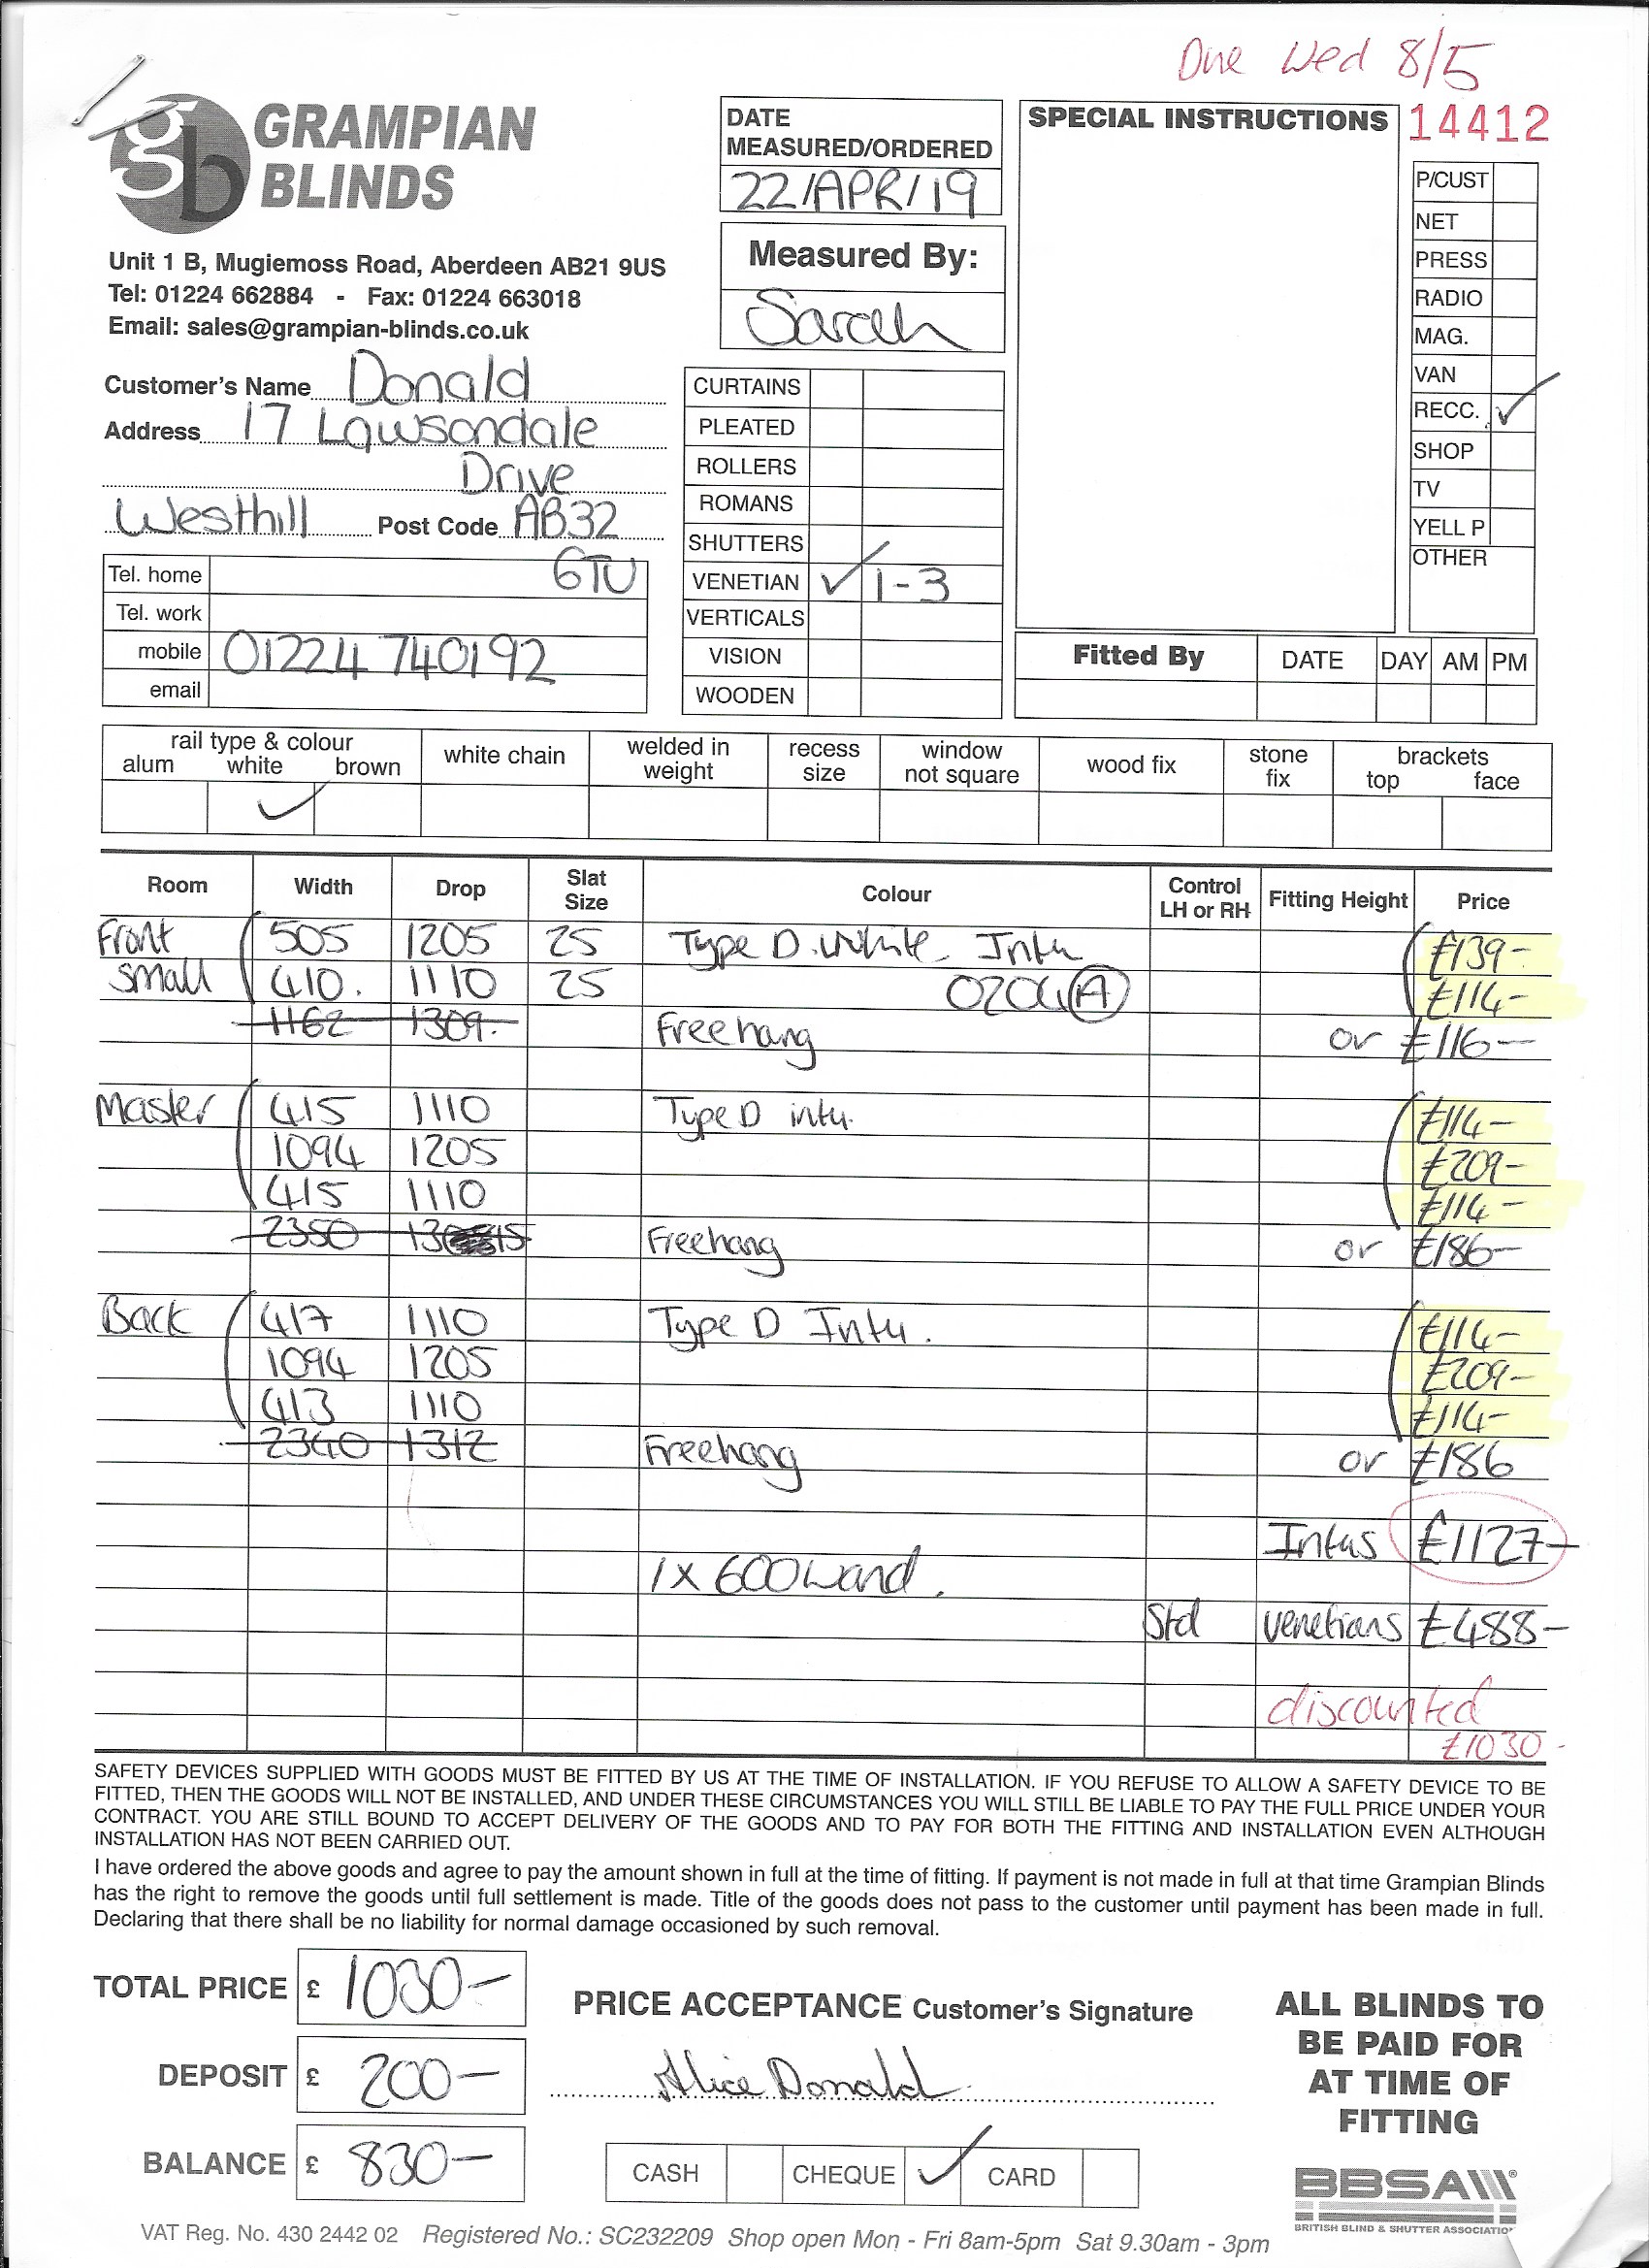 Due Wed 8/5
gb GRAMPIAN
BLINDS
Unit 1 B, Mugiemoss Road, Aberdeen AB21 9US
Tel: 01224 662884 - Fax: 01224 663018
Email: sales@grampian-blinds.co.uk
Customer's Name Donald
Address 17 Lawsondale
Drive
Westhill Post Code AB32
6TU
Tel. home
Tel. work
mobile 01224 740192
email
DATE
MEASURED/ORDERED
22/APR/19
Measured By:
Sarah
CURTAINS
PLEATED
ROLLERS
ROMANS
SHUTTERS
VENETIAN ✓ 1-3
VERTICALS
VISION
WOODEN
SPECIAL INSTRUCTIONS
14412
P/CUST
NET
PRESS
RADIO
MAG.
VAN
RECC. ✓
SHOP
TV
YELL P
OTHER
Fitted By DATE DAY AM PM
rail type & colour white chain welded in weight recess size window not square wood fix stone fix brackets
alum white brown top face
✓
Room Width Drop Slat Size Colour Control LH or RH Fitting Height Price
Front 505 1205 25 Type D. White Intu £139-
Small 410. 1110 25 0204 A £114-
1162 1309. Freehang or £116-
Master 415 1110 Type D intu. £114-
1094 1205 £209-
415 1110 £114-
2350 Freehang or £186-
Back 417 1110 Type D Intu. £114-
1094 1205 £209-
413 1110 £114-
2340 1312 Freehang or £186
Intus £1127-
1 x 600 wand.
Std venetians £488-
discounted
£1030-
SAFETY DEVICES SUPPLIED WITH GOODS MUST BE FITTED BY US AT THE TIME OF INSTALLATION. IF YOU REFUSE TO ALLOW A SAFETY DEVICE TO BE
FITTED, THEN THE GOODS WILL NOT BE INSTALLED, AND UNDER THESE CIRCUMSTANCES YOU WILL STILL BE LIABLE TO PAY THE FULL PRICE UNDER YOUR
CONTRACT. YOU ARE STILL BOUND TO ACCEPT DELIVERY OF THE GOODS AND TO PAY FOR BOTH THE FITTING AND INSTALLATION EVEN ALTHOUGH
INSTALLATION HAS NOT BEEN CARRIED OUT.
I have ordered the above goods and agree to pay the amount shown in full at the time of fitting. If payment is not made in full at that time Grampian Blinds
has the right to remove the goods until full settlement is made. Title of the goods does not pass to the customer until payment has been made in full.
Declaring that there shall be no liability for normal damage occasioned by such removal.
TOTAL PRICE £ 1030-
DEPOSIT £ 200-
BALANCE £ 830-
PRICE ACCEPTANCE Customer's Signature
Alice Donald
CASH CHEQUE ✓ CARD
ALL BLINDS TO
BE PAID FOR
AT TIME OF
FITTING
BBSA
BRITISH BLIND & SHUTTER ASSOCIATIO
VAT Reg. No. 430 2442 02 Registered No.: SC232209 Shop open Mon - Fri 8am-5pm Sat 9.30am - 3pm